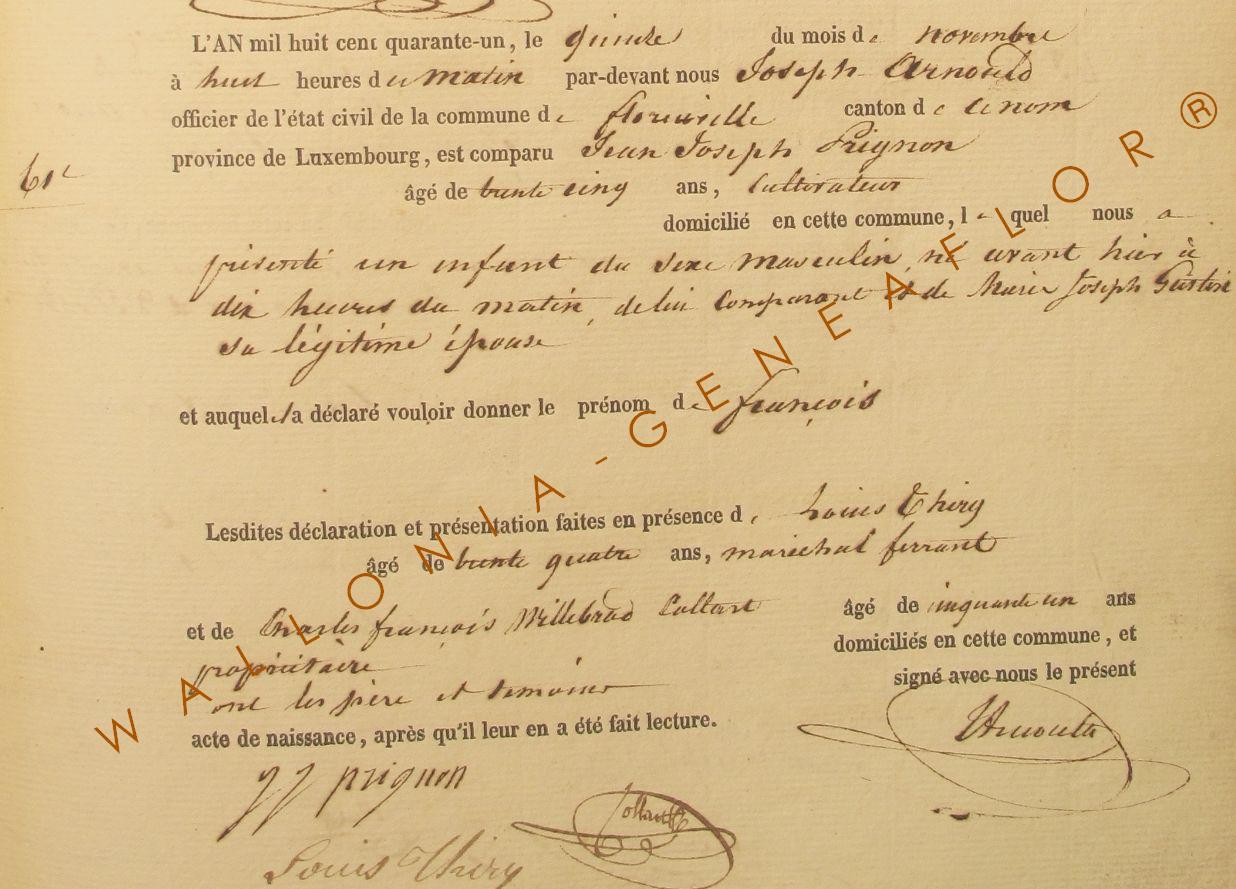 L'AN mil huit cent quarante-un, le quinze du mois de novembre
à huit heures du matin par-devant nous Joseph Arnould
officier de l'état civil de la commune de florenville canton de ce nom
province de Luxembourg, est comparu Jean Joseph Prignon
61e
âgé de trente cinq ans, Cultivateur
domicilié en cette commune, lequel nous a
présenté un enfant du sexe masculin, né avant hier à
dix heures du matin, de lui Comparant et de Marie Joseph Gustin
sa légitime épouse
et auquel il a déclaré vouloir donner le prénom de françois
Lesdites déclaration et présentation faites en présence de Louis Thiry
âgé de trente quatre ans, maréchal ferrant
et de Charles françois Willebrod Collart âgé de cinquante un ans
propriétaire domiciliés en cette commune, et
ont les père et témoins signé avec nous le présent
acte de naissance, après qu'il leur en a été fait lecture.
JJ prignon
Collart
Louis Thiry
WALLONIA-GENEAFLOR®